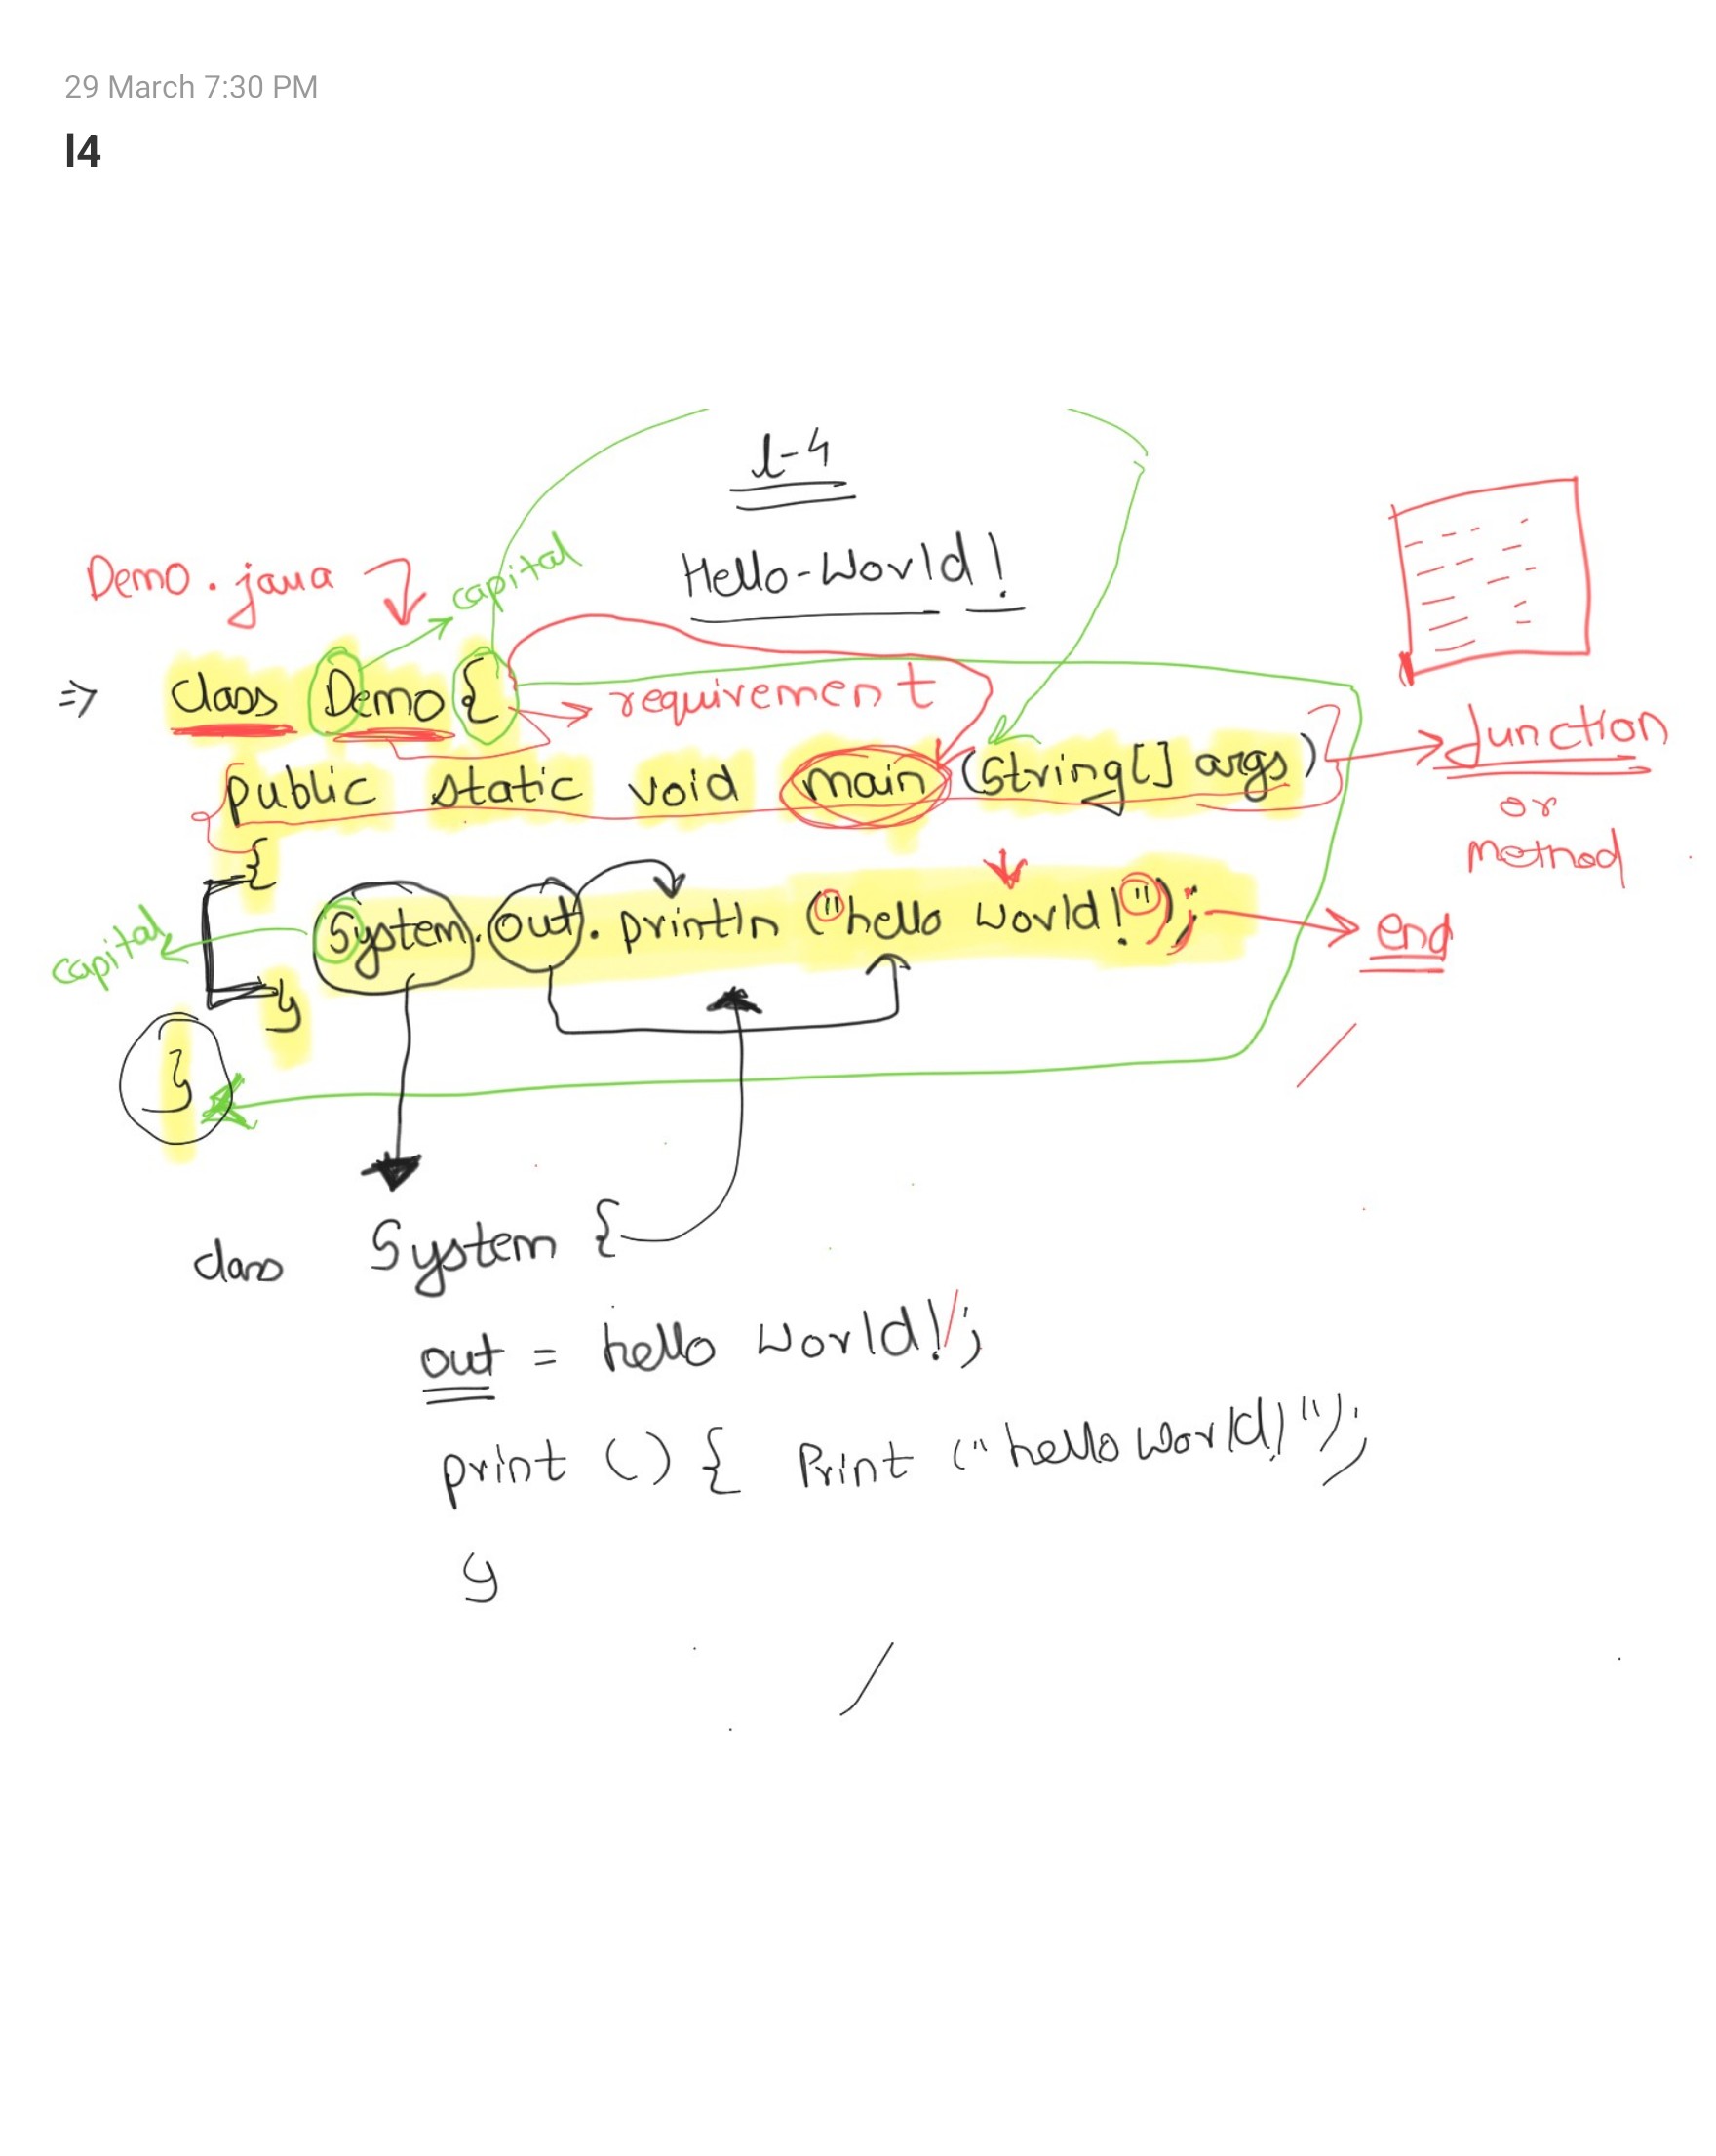 29 March 7:30 PM
l4
l-4
Hello-World!
Demo.java
capital
=> class Demo {
requirement
public static void main (String[] args)
function
or
method
{
System.out.println ("hello world!");
end
capital
}
}
class System {
out = hello world!';
print () { Print ("hello world!");
}